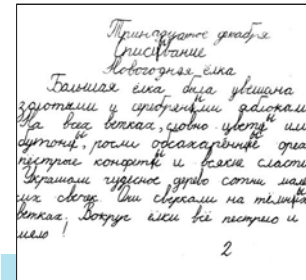 Тринадцатое декабря
Списывание
Новогодняя ёлка
Большая ёлка была увешана
золотыми и серебряными яблоками
На всех ветках, словно цветы или
бутоны, росли обсахаренные орех
пестрые конфеты и всякие сласти
Украшали чудесное дерево сотни мале
ких свечек. Они сверкали на тёмных
ветках. Вокруг ёлки всё пестрело и
мело!
2